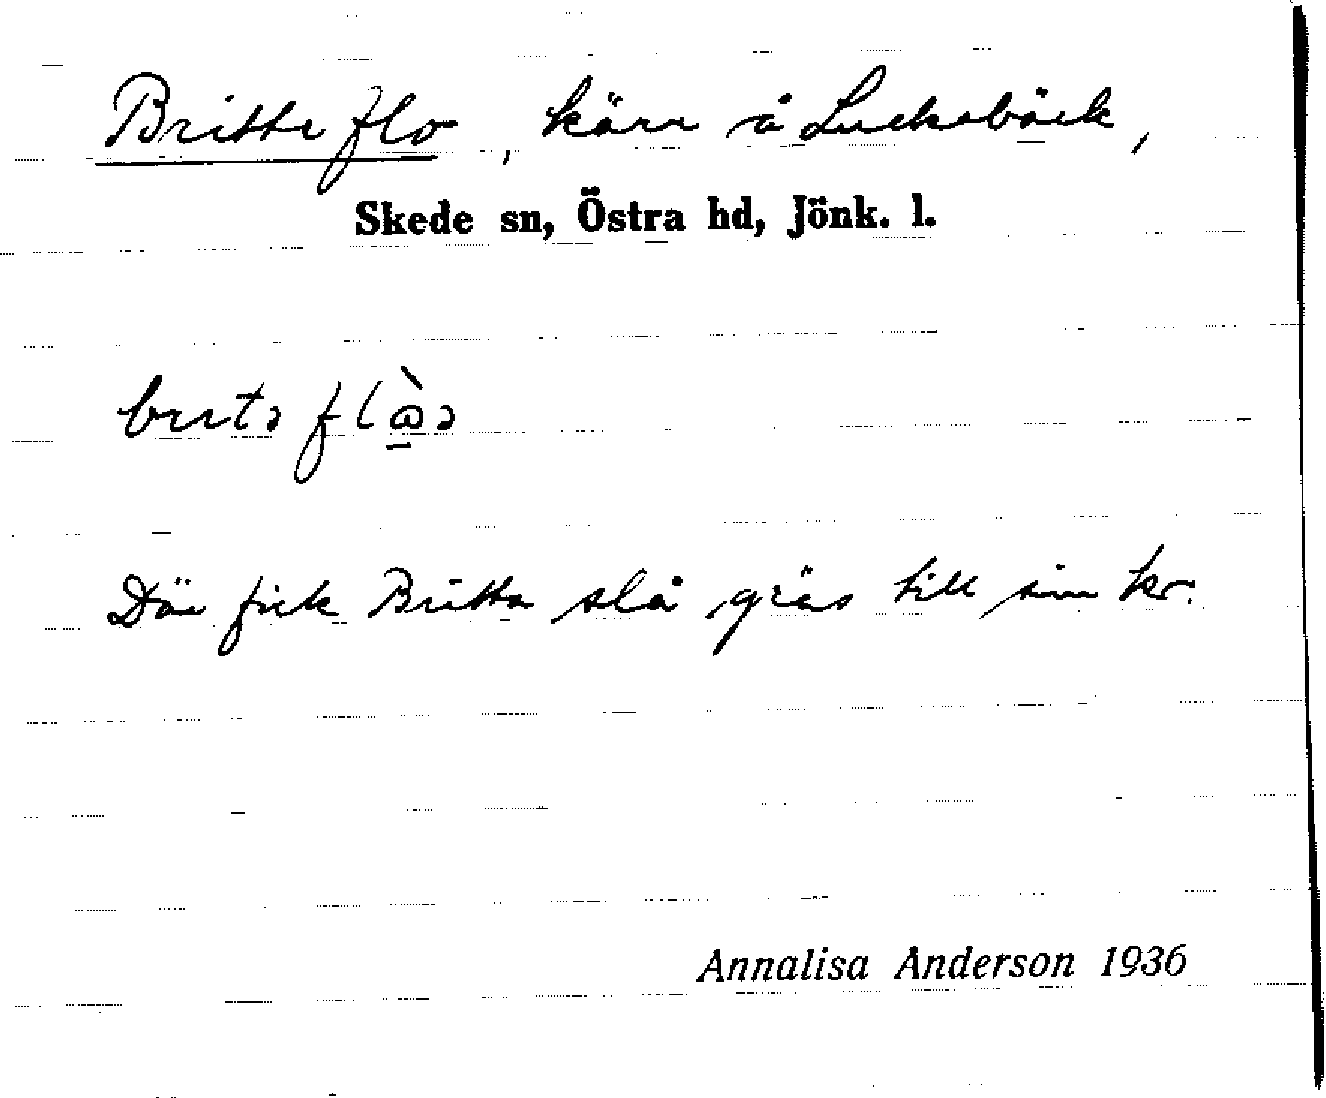 Britteflo, kärr å Lucksbäck,
Skede sn, Östra hd, Jönk. l.
Där fick Britta slå gräs till sin ko.
Annalisa Anderson 1936